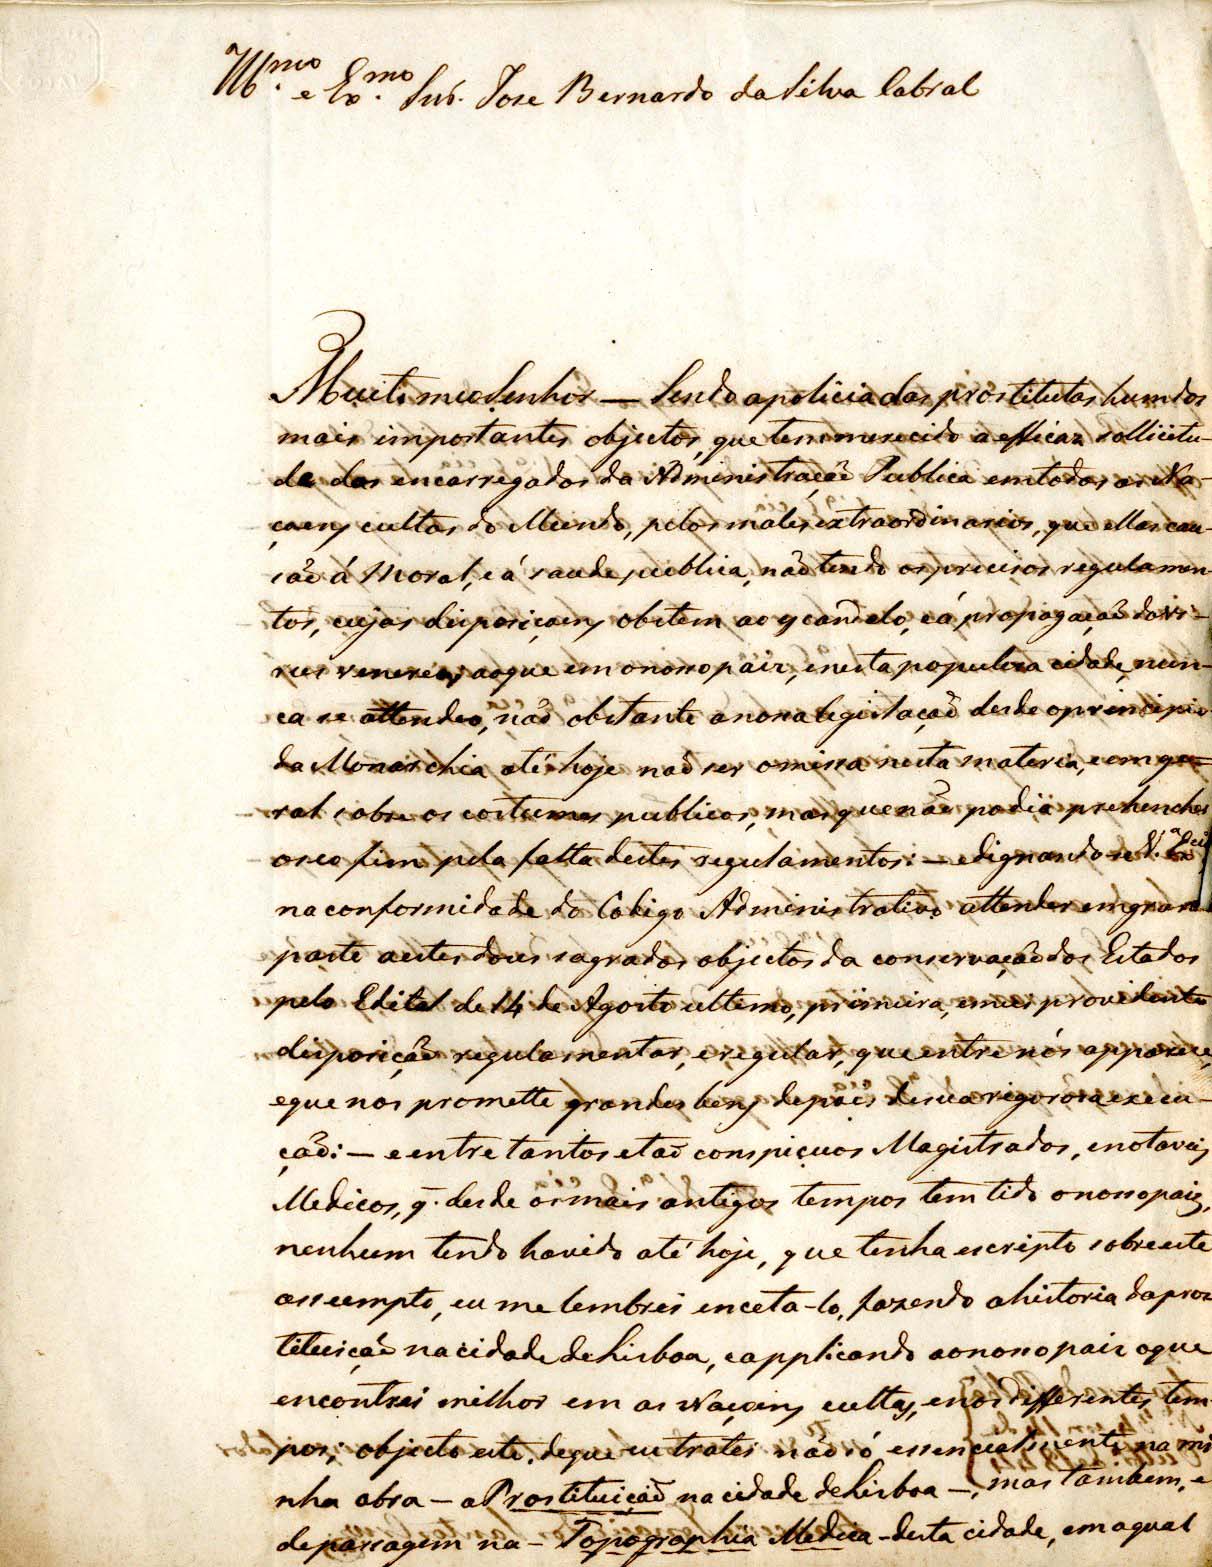 Ill.mo e Ex.mo Snr. Jose Bernardo da Silva Cabral
Muito meo Senhor — Sendo a policia das prostitutas hum dos
mais importantes objectos, que tem merecido a efficaz sollicitu-
de dos encarregados da Administração Publica em todas as Na-
çoens cultas do Mundo, pelos males extraordinarios, que ellas cau-
são á Moral, e á saude publica, não tendo os precisos regulamen-
tos, cujas disposiçoens obstem ao escandalo, e á propagação do vi-
rus venereo; ao que em o nosso paiz, e nesta populosa cidade, nun-
ca se attendeo, não obstante a nossa legislação desde o principio
da Monarchia até hoje naõ ser omissa nesta materia, e em ge-
ral sobre os costumes publicos, mas que não podia prehencher
o seo fim pela falta destes regulamentos: — e dignando-se V. Ex.cia
na conformidade do Codigo Administrativo attender em grande
parte a estes dous sagrados objectos da conservação dos Estados
pelo Edital de 14 de Agosto ultimo, primeira, e mui providente
disposição regulamentar, e regular, que entre nós apparece,
e que nos promette grandes bens depois de sua rigorosa execu-
ção: — e entre tantos e taõ conspicuos Magistrados, e notaveis
Medicos, q. desde os mais antigos tempos tem tido o nosso paiz,
nenhum tendo havido até hoje, que tenha escripto sobre este
assumpto, eu me lembrei enceta-lo, fazendo a historia da pros
tituição na cidade de Lisboa, e applicando ao nosso paiz o que
encontrei milhor em as Naçoens cultas, e nos differentes tem-
pos; objecto este, de que eu tratei não só essencialmente na mi
nha obra — a Prostituiçaõ na cidade de Lisboa —, mas tambem, e
de passagem na — Topographia Medica — desta cidade, em a qual